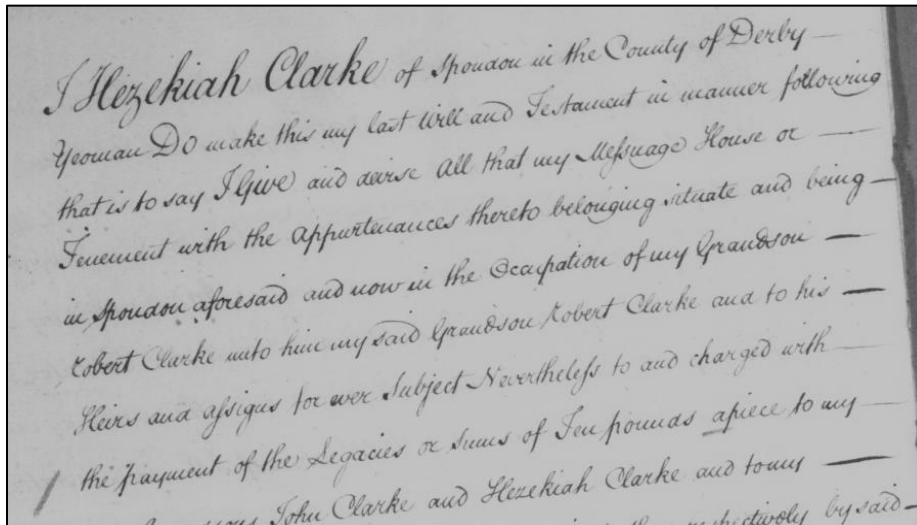 I Hezekiah Clarke of Spondon in the County of Derby —
Yeoman Do make this my last Will and Testament in manner following
that is to say I Give and devise all that my Messuage House or —
Tenement with the Appurtenances thereto belonging situate and being —
in Spondon aforesaid and now in the Occupation of my Grandson —
Robert Clarke unto him my said Grandson Robert Clarke and to his —
Heirs and assigns for ever Subject Nevertheless to and charged with —
the payment of the Legacies or sums of Ten pounds apiece to my —
John Clarke and Hezekiah Clarke and to my —
respectively by said —